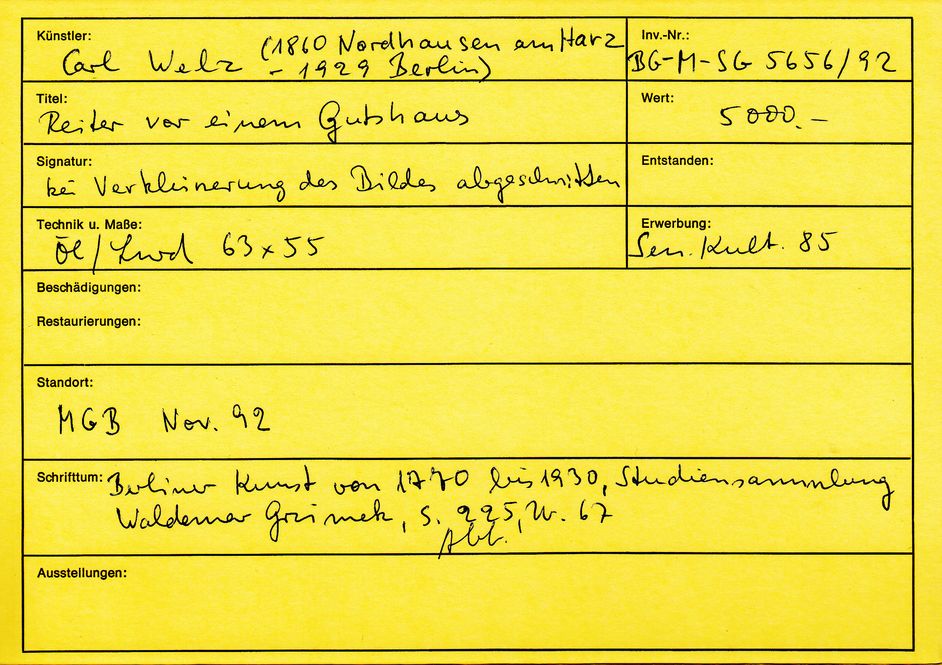 Künstler:
Carl Welz (1860 Nordhausen am Harz
- 1929 Berlin)
Inv.-Nr.:
BG-M-SG 5656/92
Titel:
Reiter vor einem Gutshaus
Wert:
5000.-
Signatur:
bei Verkleinerung des Bildes abgeschnitten
Entstanden:
Technik u. Maße:
Öl/Lwd 63x55
Erwerbung:
Sen. Kult. 85
Beschädigungen:
Restaurierungen:
Standort:
MGB Nov. 92
Schrifttum: Berliner Kunst von 1770 bis 1930, Studiensammlung
Waldemar Grzimek, S. 225, Nr. 67
Abb.
Ausstellungen: